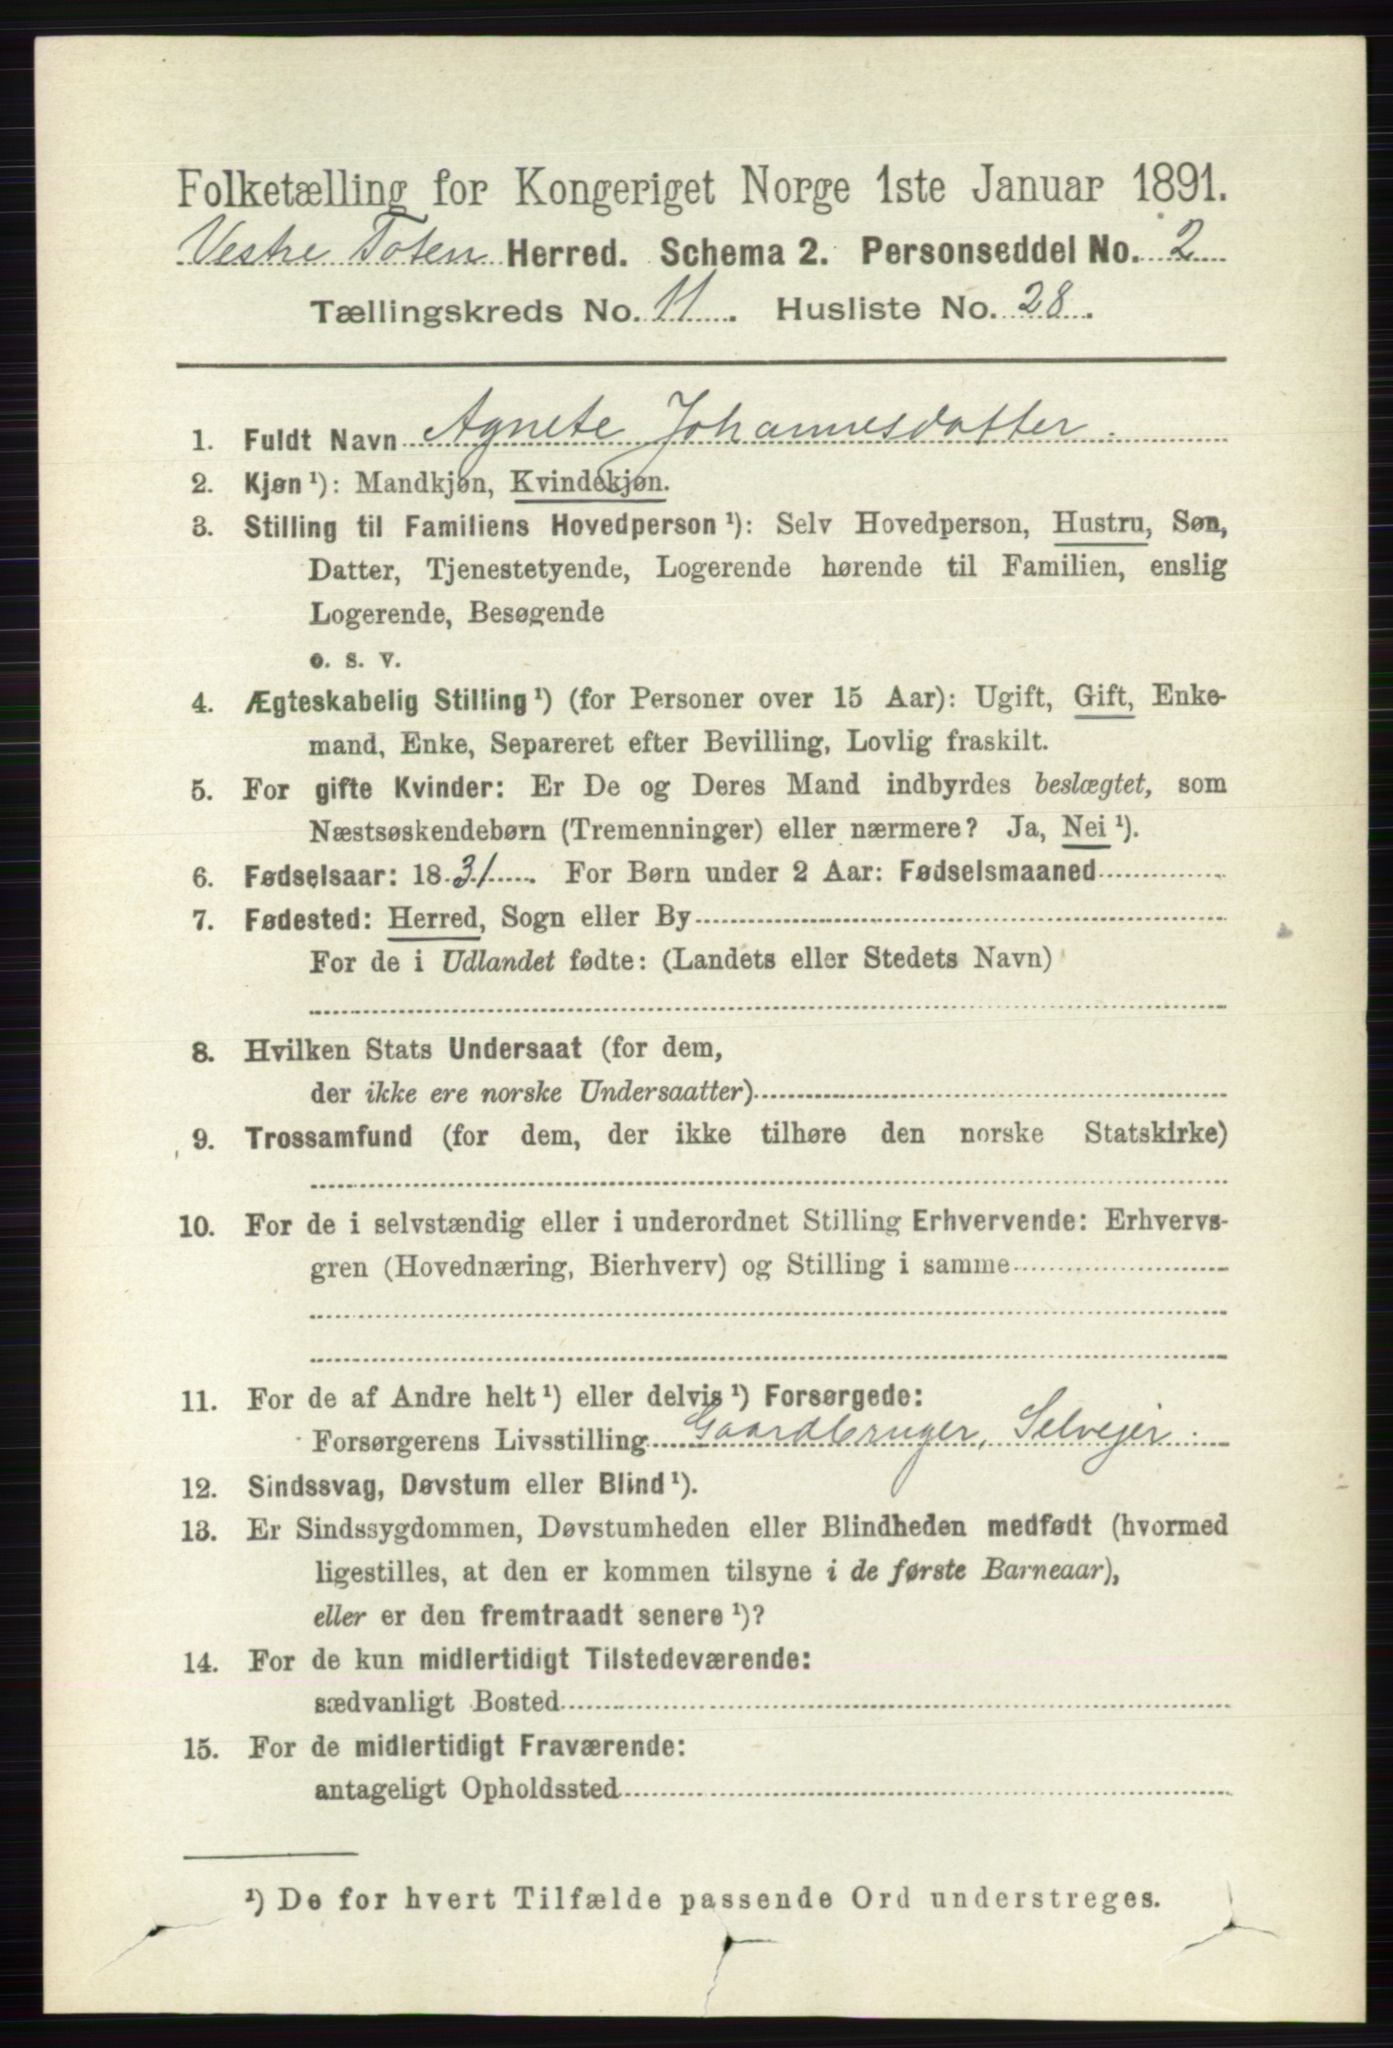 Folketælling for Kongeriget Norge 1ste Januar 1891.
Vestre Toten Herred. Schema 2. Personseddel No. 2
Tællingskreds No. 11. Husliste No. 28.
1. Fuldt Navn Agnete Johannesdatter.
2. Kjøn ¹): Mandkjøn, Kvindekjøn.
3. Stilling til Familiens Hovedperson ¹): Selv Hovedperson, Hustru, Søn,
Datter, Tjenestetyende, Logerende hørende til Familien, enslig
Logerende, Besøgende
o. s. v.
4. Ægteskabelig Stilling ¹) (for Personer over 15 Aar): Ugift, Gift, Enke-
mand, Enke, Separeret efter Bevilling, Lovlig fraskilt.
5. For gifte Kvinder: Er De og Deres Mand indbyrdes beslægtet, som
Næstsøskendebørn (Tremenninger) eller nærmere? Ja, Nei ¹).
6. Fødselsaar: 1831. For Børn under 2 Aar: Fødselsmaaned
7. Fødested: Herred, Sogn eller By
For de i Udlandet fødte: (Landets eller Stedets Navn)
8. Hvilken Stats Undersaat (for dem,
der ikke ere norske Undersaatter)
9. Trossamfund (for dem, der ikke tilhøre den norske Statskirke)
10. For de i selvstændig eller i underordnet Stilling Erhvervende: Erhvervs-
gren (Hovednæring, Bierhverv) og Stilling i samme
11. For de af Andre helt ¹) eller delvis ¹) Forsørgede:
Forsørgerens Livsstilling Gaardbruger, Selvejer.
12. Sindssvag, Døvstum eller Blind ¹).
13. Er Sindssygdommen, Døvstumheden eller Blindheden medfødt (hvormed
ligestilles, at den er kommen tilsyne i de første Barneaar),
eller er den fremtraadt senere ¹)?
14. For de kun midlertidigt Tilstedeværende:
sædvanligt Bosted
15. For de midlertidigt Fraværende:
antageligt Opholdssted
¹) De for hvert Tilfælde passende Ord understreges.